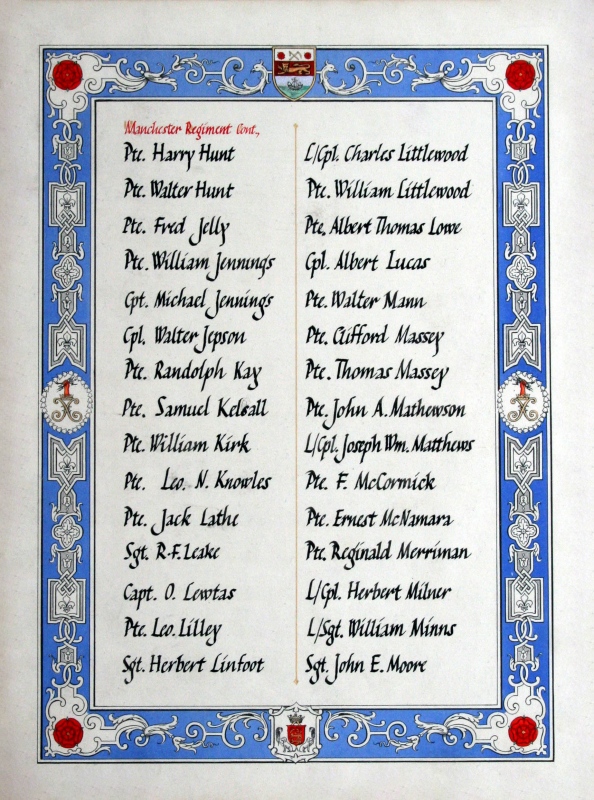 Manchester Regiment Cont.,
Pte. Harry Hunt
Pte. Walter Hunt
Pte. Fred Jelly
Pte. William Jennings
Cpt. Michael Jennings
Cpl. Walter Jepson
Pte. Randolph Kay
Pte. Samuel Kelsall
Pte. William Kirk
Pte. Leo. N. Knowles
Pte. Jack Lathe
Sgt. R.F. Leake
Capt. O. Lewtas
Pte. Leo. Lilley
Sgt. Herbert Linfoot
L/Cpl. Charles Littlewood
Pte. William Littlewood
Pte. Albert Thomas Lowe
Cpl. Albert Lucas
Pte. Walter Mann
Pte. Clifford Massey
Pte. Thomas Massey
Pte. John A. Mathewson
L/Cpl. Joseph Wm. Matthews
Pte. F. McCormick
Pte. Ernest McNamara
Pte. Reginald Merriman
L/Cpl. Herbert Milner
L/Sgt. William Minns
Sgt. John E. Moore